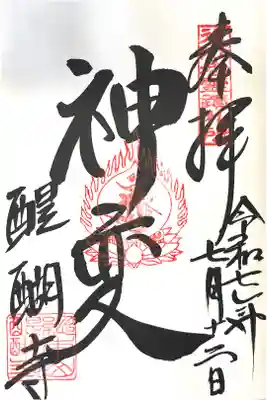 奉拝
令和七年
七月十六日
神変
醍醐寺